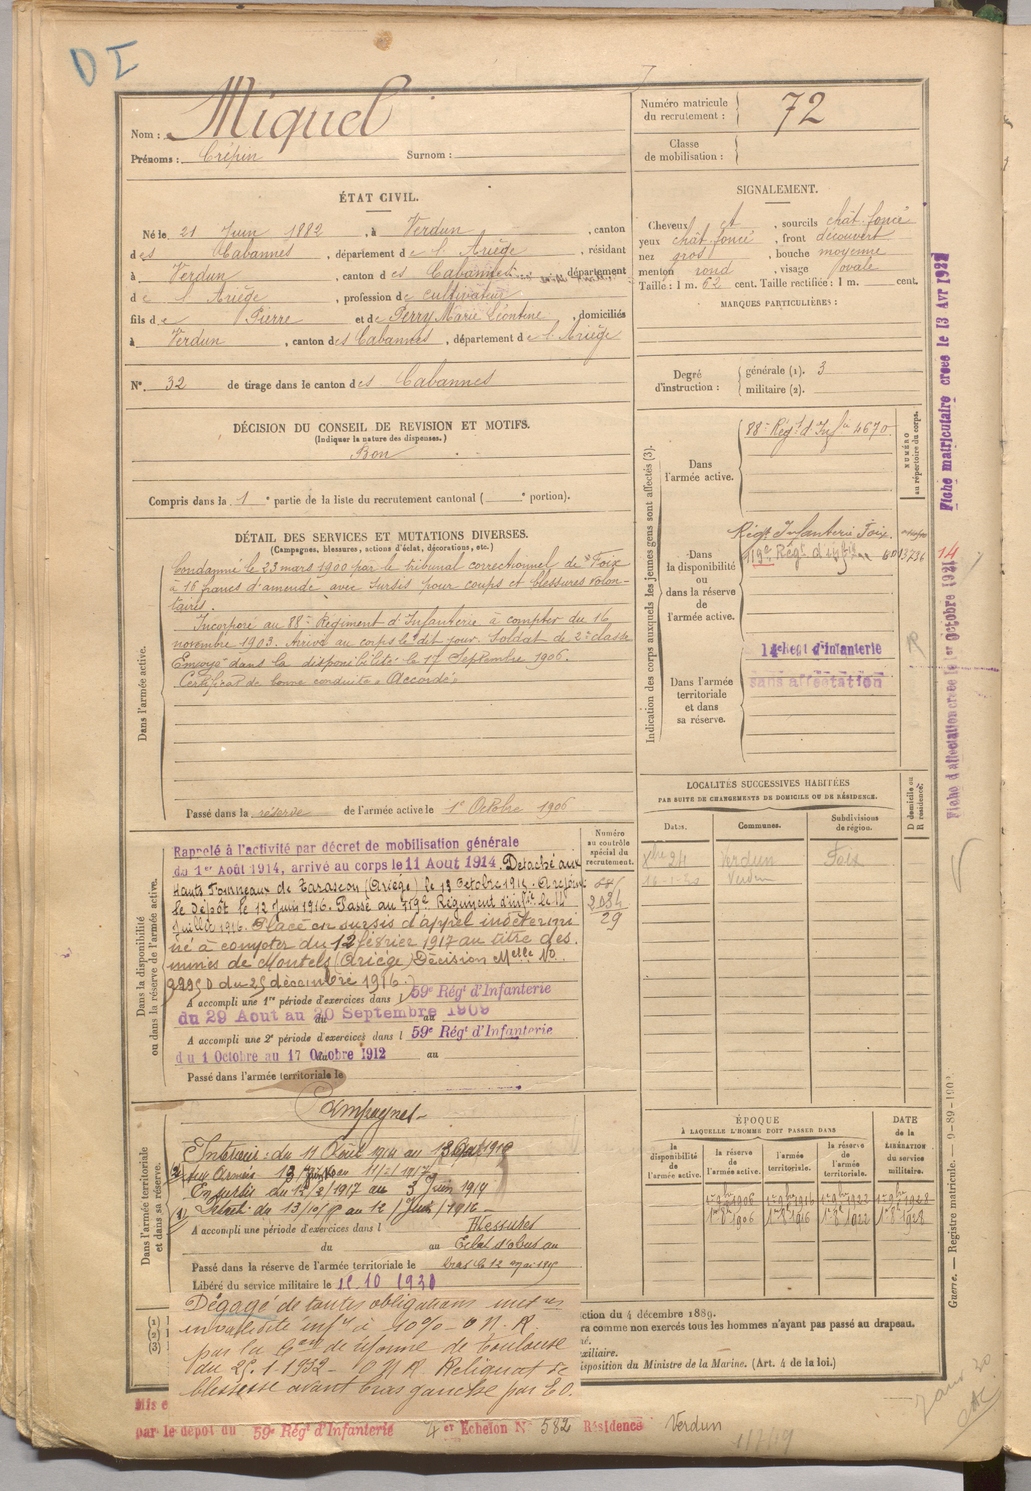 D I
Nom : Miquel
Prénoms : Crépin Surnom :
Numéro matricule du recrutement : 72
Classe de mobilisation :
ÉTAT CIVIL.
Né le 21 Juin 1882, à Verdun, canton
des Cabannes, département de l'Ariège, résidant
à Verdun, canton des Cabannes, département
de l'Ariège, profession de cultivateur
fils de Pierre et de Ferry Marie Léontine, domiciliés
à Verdun, canton des Cabannes, département de l'Ariège
N° 32 de tirage dans le canton des Cabannes
SIGNALEMENT.
Cheveux et, sourcils chât. foncé
yeux chât. foncé, front découvert
nez gros, bouche moyenne
menton rond, visage ovale
Taille : 1 m. 62 cent. Taille rectifiée : 1 m. cent.
MARQUES PARTICULIÈRES :
Degré d'instruction : générale (1). 3
militaire (2).
DÉCISION DU CONSEIL DE REVISION ET MOTIFS.
(Indiquer la nature des dispenses.)
Bon
Compris dans la 1e partie de la liste du recrutement cantonal ( e portion).
DÉTAIL DES SERVICES ET MUTATIONS DIVERSES.
(Campagnes, blessures, actions d'éclat, décorations, etc.)
Dans l'armée active.
Condamné le 23 mars 1900 par le tribunal correctionnel de Foix
à 16 francs d'amende avec sursis pour coups et blessures volon-
taires.
Incorporé au 88e Régiment d'Infanterie à compter du 16
novembre 1903. Arrivé au corps le dit jour. Soldat de 2e classe
Envoyé dans la disponibilité le 17 Septembre 1906.
Certificat de bonne conduite "Accordé"
Passé dans la réserve de l'armée active le 1er Octobre 1906
Indication des corps auxquels les jeunes gens sont affectés (3).
NUMÉRO au répertoire du corps.
Dans l'armée active.
88e Régt d'Infie 4670
Dans la disponibilité ou dans la réserve de l'armée active.
Régt Infanterie Foix
119e Régt d'Infie
14e Regt d'Infanterie
sans affectation
Dans l'armée territoriale et dans sa réserve.
Fiche matriculaire créée le 13 Avr 1927
Fiche d'affectation créée le 1er octobre 1921
14
R
LOCALITÉS SUCCESSIVES HABITÉES
PAR SUITE DE CHANGEMENTS DE DOMICILE OU DE RÉSIDENCE.
Dates. Communes. Subdivisions de région. D domicile ou R résidence.
Xbre 24 Verdun Foix
Verdun
Dans la disponibilité ou dans la réserve de l'armée active.
Numéro au contrôle spécial du recrutement.
2084
29
Rappelé à l'activité par décret de mobilisation générale
du 1er Août 1914, arrivé au corps le 11 Aout 1914. Détaché aux
Hauts Fourneaux de Tarascon (Ariège) le 13 Octobre 1914. A rejoint
le Dépôt le 12 Juin 1916. Passé au 119e Régiment d'Infie le 11
Juillet 1916. Placé en sursis d'appel indétermi
né à compter du 12 février 1917 au titre des
mines de Montels (Ariège) Décision Melle No
9995 D du 25 décembre 1916.
A accompli une 1re période d'exercices dans l 59e Régt d'Infanterie
du 29 Aout au 20 Septembre 1909
A accompli une 2e période d'exercices dans l 59e Régt d'Infanterie
du 1 Octobre au 17 Octobre 1912 au
Passé dans l'armée territoriale le
Dans l'armée territoriale et dans sa réserve.
Campagnes
Intérieur : du 11 Août 1914 au
2) Aux Armées 13 Juin au 11/2/1917
En sursis du 12/2/1917 au 3 Juin 1919
1) Détach. du 13/10/ au 12/Juin/1916
A accompli une période d'exercices dans l Blessures
du au Eclat d'obus au
Passé dans la réserve de l'armée territoriale le bras le 12
Libéré du service militaire le
Dégagé de toutes obligations mili res
invalidité infre à 10% O N. R.
par la Con de réforme de Toulouse
du 25.1.1932 - O N R. Reliquat de
blessure avant bras gauche par E.O.
ÉPOQUE
À LAQUELLE L'HOMME DOIT PASSER DANS
la disponibilité de l'armée active. la réserve de l'armée active. l'armée territoriale. la réserve de l'armée territoriale. DATE de la LIBÉRATION du service militaire.
1er 9bre 1906 1er 9bre 1916 1er 9bre 1922 1er 9bre 1928
1er 8bre 1906 1er 8bre 1916 1er 8bre 1922 1er 8bre 1928
ction du 4 décembre 1889.
ra comme non exercés tous les hommes n'ayant pas passé au drapeau.
é.
xiliaire.
isposition du Ministre de la Marine. (Art. 4 de la loi.)
Guerre. — Registre matricule. — 9-89-190
Mis e
par le dépôt du 59e Régt d'Infanterie 4 er Echelon N° 582 Résidence Verdun